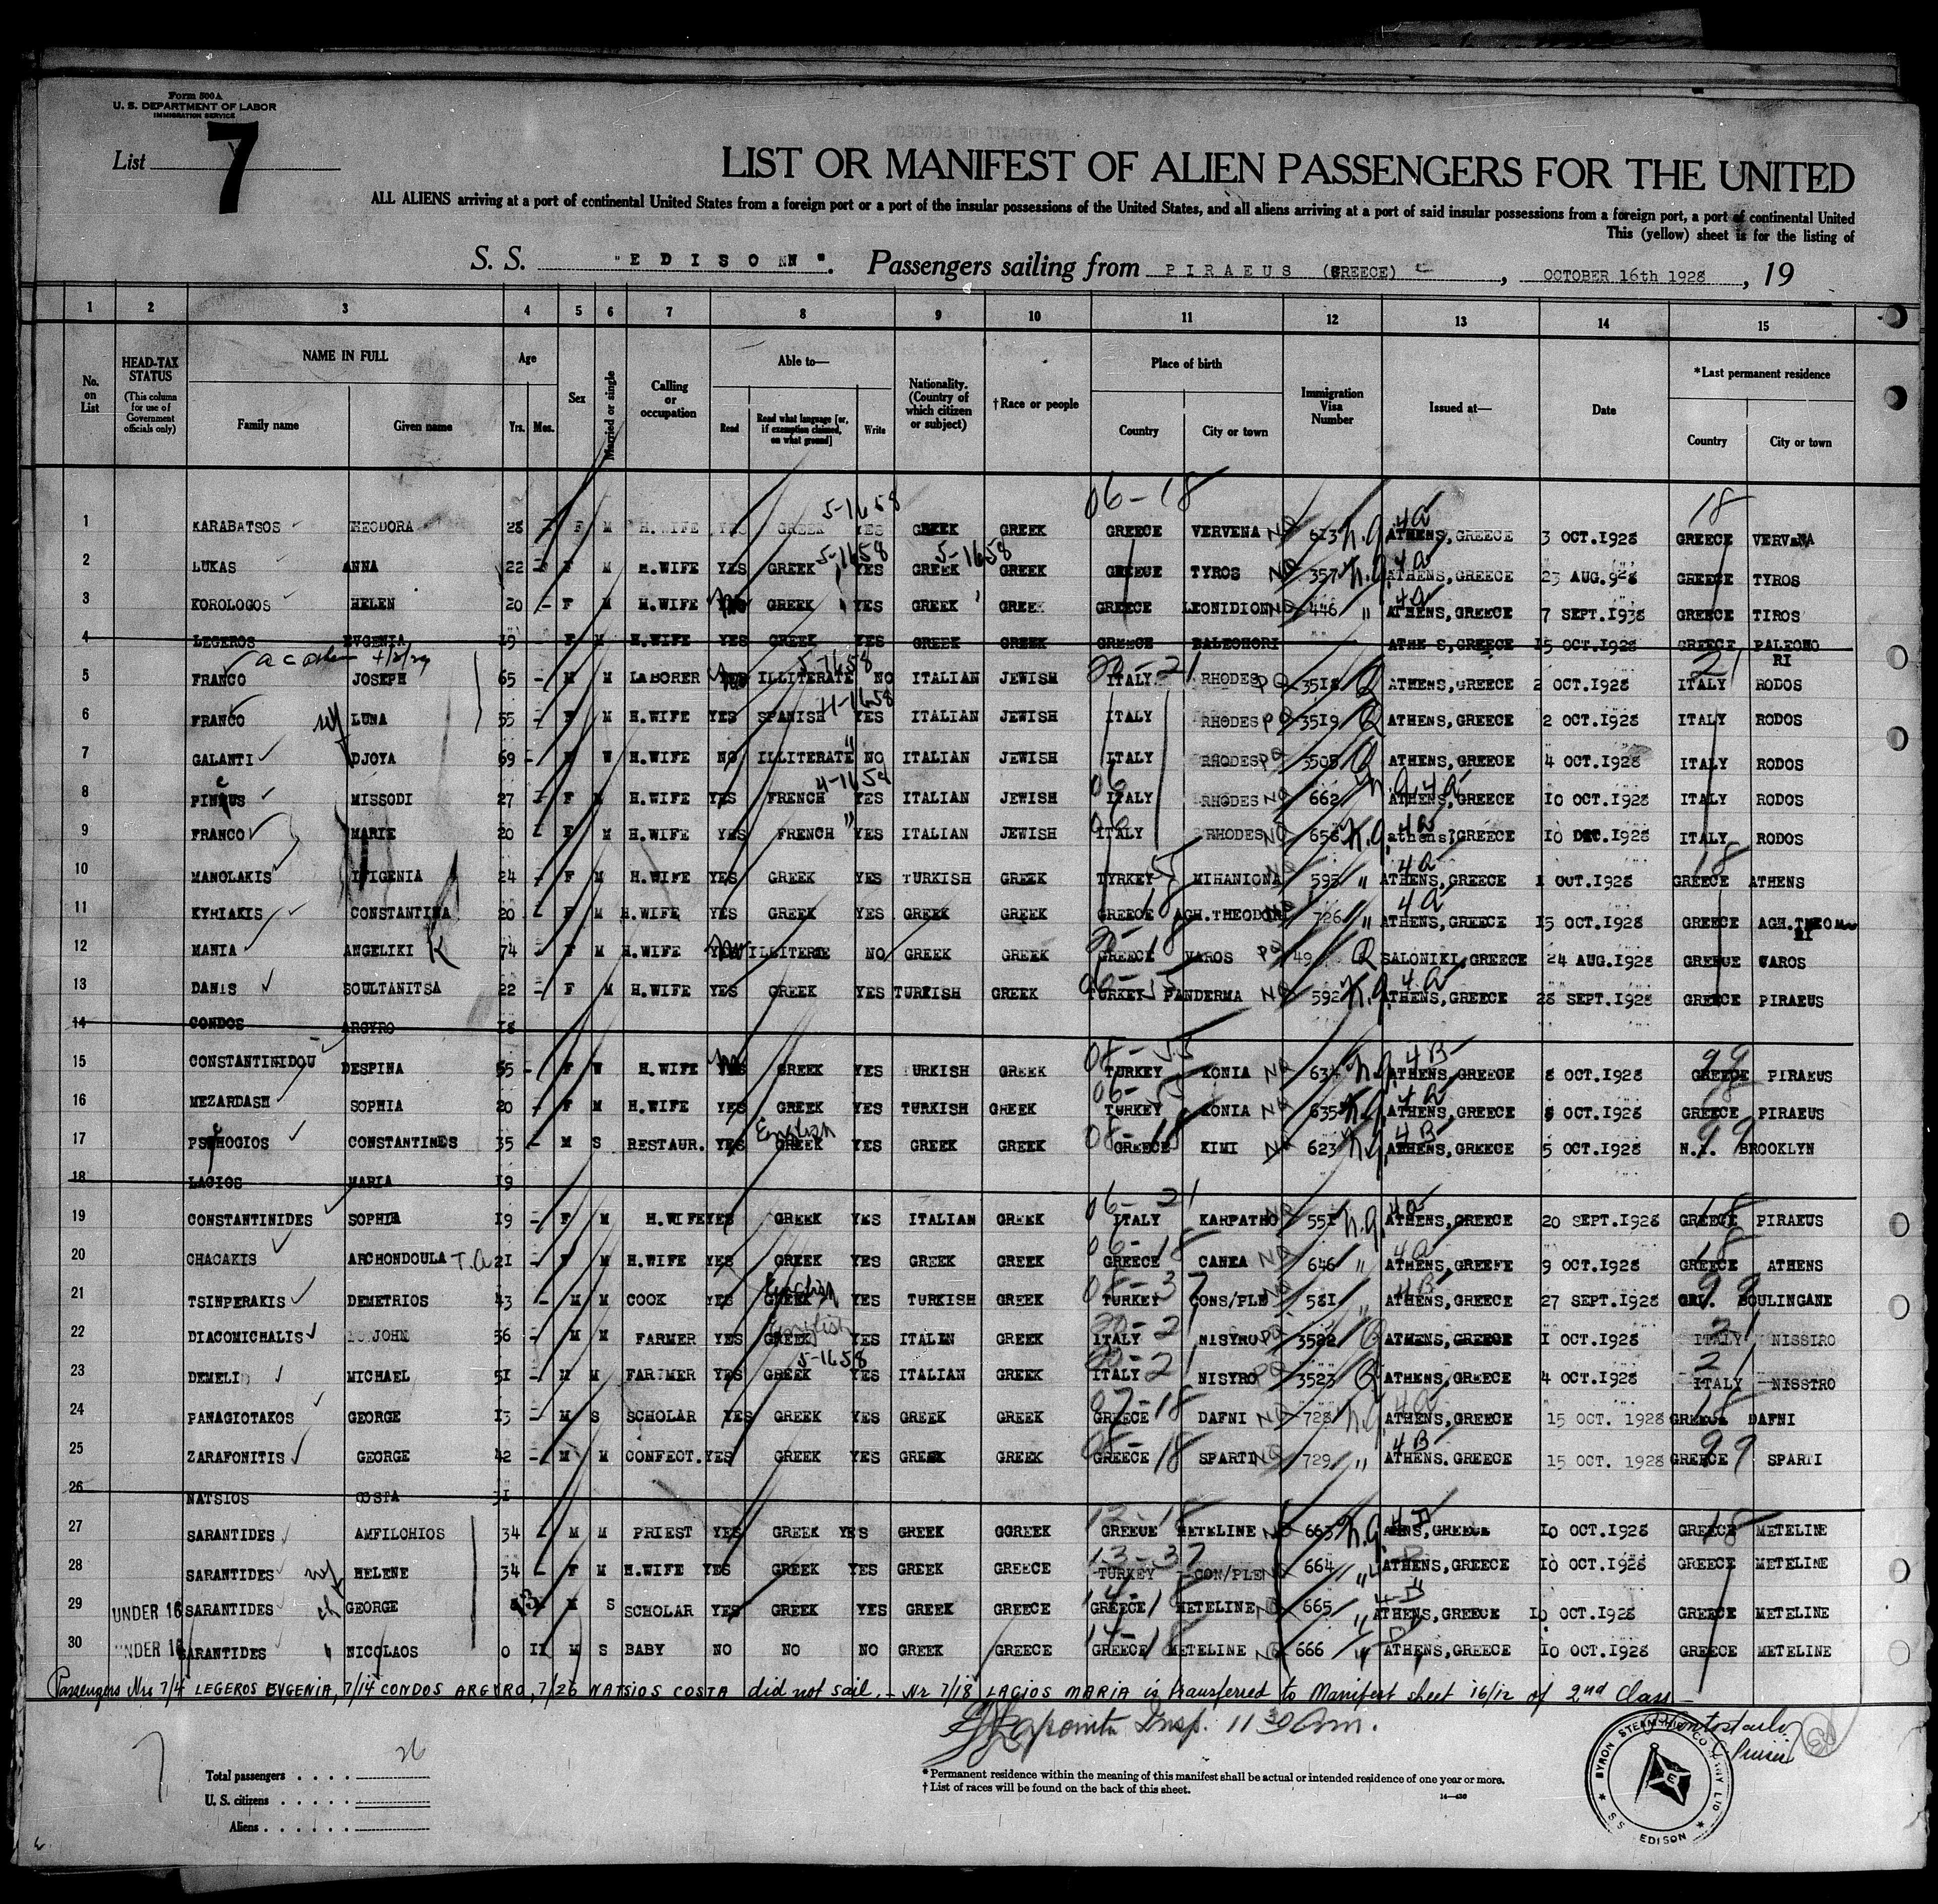 Form 500 A
U. S. DEPARTMENT OF LABOR
IMMIGRATION SERVICE
List 7
LIST OR MANIFEST OF ALIEN PASSENGERS FOR THE UNITED
ALL ALIENS arriving at a port of continental United States from a foreign port or a port of the insular possessions of the United States, and all aliens arriving at a port of said insular possessions from a foreign port, a port of continental United
This (yellow) sheet is for the listing of
S. S. "EDISON". Passengers sailing from PIRAEUS (GREECE), OCTOBER 16th 1928, 19
1 2 3 4 5 6 7 8 9 10 11 12 13 14 15
No. on List
HEAD-TAX STATUS (This column for use of Government officials only)
NAME IN FULL Family name Given name
Age Yrs. Mos.
Sex
Married or single
Calling or occupation
Able to— Read Read what language [or, if exemption claimed, on what ground] Write
Nationality. (Country of which citizen or subject)
†Race or people
Place of birth Country City or town
Immigration Visa Number
Issued at—
Date
*Last permanent residence Country City or town
1 KARABATSOS THEODORA 28 - F M H.WIFE YES GREEK YES GREEK GREEK GREECE VERVENA 613 ATHENS, GREECE 3 OCT.1928 GREECE VERVENA
2 LUKAS ANNA 22 - F M H.WIFE YES GREEK YES GREEK GREEK GREECE TYROS 357 ATHENS, GREECE 23 AUG.928 GREECE TYROS
3 KOROLOGOS HELEN 20 - F M H.WIFE GREEK YES GREEK GREEK GREECE LEONIDION 446 ATHENS, GREECE 7 SEPT.1938 GREECE TIROS
4 LEGEROS EVGENIA 19 F M H.WIFE YES GREEK YES GREEK GREEK GREECE PALEOHORI ATHE S, GREECE 15 OCT.1928 GREECE PALEOHO RI
5 FRANCO JOSEPH 65 - M M LABORER ILLITERATE NO ITALIAN JEWISH ITALY RHODES 3518 ATHENS, GREECE 2 OCT.1928 ITALY RODOS
6 FRANCO LUNA 55 - F M H.WIFE YES SPANISH YES ITALIAN JEWISH ITALY RHODES 3519 ATHENS, GREECE 2 OCT.1928 ITALY RODOS
7 GALANTI DJOYA 69 - F W H.WIFE NO ILLITERATE NO ITALIAN JEWISH ITALY RHODES 3505 ATHENS, GREECE 4 OCT.1928 ITALY RODOS
8 MISSODI 27 - F M H.WIFE YES FRENCH YES ITALIAN JEWISH ITALY RHODES 662 ATHENS, GREECE 10 OCT.1928 ITALY RODOS
9 FRANCO MARIE 20 - F M H.WIFE YES FRENCH YES ITALIAN JEWISH ITALY RHODES 658 athens, GREECE 10 DEC.1928 ITALY RODOS
10 MANOLAKIS IFIGENIA 24 - F M H.WIFE YES GREEK YES TURKISH GREEK TYRKEY MIHANIONA 595 " ATHENS, GREECE 1 OCT.1928 GREECE ATHENS
11 KYRIAKIS CONSTANTINA 20 - F M H.WIFE YES GREEK YES GREEK GREEK GREECE AGH.THEODORI 726 " ATHENS, GREECE 15 OCT.1928 GREECE AGH.THEO
12 MANIA ANGELIKI 74 - F M H.WIFE ILLITERE NO GREEK GREEK GREECE VAROS 49 SALONIKI, GREECE 24 AUG.1928 GREECE VAROS
13 DANIS SOULTANITSA 22 - F M H.WIFE YES GREEK YES TURKISH GREEK TURKEY PANDERMA 592 ATHENS, GREECE 28 SEPT.1928 GREECE PIRAEUS
14 CONDOS ARGYRO 18
15 CONSTANTINIDOU DESPINA 55 - F W H.WIFE GREEK YES TURKISH GREEK TURKEY KONIA 634 ATHENS, GREECE 8 OCT.1928 GREECE PIRAEUS
16 MEZARDASH SOPHIA 20 - F M H.WIFE YES GREEK YES TURKISH GREEK TURKEY KONIA 635 ATHENS, GREECE 8 OCT.1928 GREECE PIRAEUS
17 CONSTANTINOS 35 - M S RESTAUR. YES GREEK English YES GREEK GREEK GREECE KIMI 623 ATHENS, GREECE 5 OCT.1928 N.Y. BROOKLYN
18 LAGIOS MARIA 19
19 CONSTANTINIDES SOPHIA 19 - F M H.WIFE YES GREEK YES ITALIAN GREEK ITALY KARPATHO 551 ATHENS, GREECE 20 SEPT.1928 GREECE PIRAEUS
20 CHACAKIS ARCHONDOULA 21 - F M H.WIFE YES GREEK YES GREEK GREEK GREECE CANEA 646 " ATHENS, GREEFE 9 OCT.1928 GREECE ATHENS
21 TSINPERAKIS DEMETRIOS 43 - M M COOK YES GREEK English YES TURKISH GREEK TURKEY CONS/PLE 581 " ATHENS, GREECE 27 SEPT.1928 CAL. BOULINGANE
22 DIACOMICHALIS JOHN 56 - M M FARMER YES GREEK English YES ITALIN GREEK ITALY NISYRO 3522 ATHENS, GREECE 1 OCT.1928 ITALY NISSIRO
23 DEMELI MICHAEL 51 - M M FARTMER YES GREEK YES ITALIAN GREEK ITALY NISYRO 3523 ATHENS, GREECE 4 OCT.1928 ITALY NISSTRO
24 PANAGIOTAKOS GEORGE 13 - M S SCHOLAR YES GREEK YES GREEK GREEK GREECE DAFNI 728 ATHENS, GREECE 15 OCT. 1928 GREECE DAFNI
25 ZARAFONITIS GEORGE 42 - M M CONFECT. YES GREEK YES GREEK GREEK GREECE SPARTI 729 " ATHENS. GREECE 15 OCT. 1928 GREECE SPARTI
26 NATSIOS COSTA 31
27 SARANTIDES AMFILOHIOS 34 - M M PRIEST YES GREEK YES GREEK GGREEK GREECE METELINE 663 GREECE 10 OCT.1928 GREECE METELINE
28 SARANTIDES HELENE 34 - F M H.WIFE YES GREEK YES GREEK GREECE TURKEY CON/PLE 664 " ATHENS, GREECE 10 OCT.1928 GREECE METELINE
29 UNDER 16 SARANTIDES GEORGE M S SCHOLAR YES GREEK YES GREEK GREECE GREECE METELINE 665 " ATHENS, GREECE 10 OCT.1928 GREECE METELINE
30 UNDER 16 SARANTIDES " NICOLAOS 0 11 M S BABY NO NO NO GREEK GREECE GREECE METELINE 666 " ATHENS, GREECE 10 OCT.1928 GREECE METELINE
Passengers Nrs 7/4 LEGEROS EVGENIA, 7/14 CONDOS ARGYRO, 7/26 NATSIOS COSTA did not sail. - Nr 7/18 LAGIOS MARIA is transferred to Manifest sheet 16/12 of 2nd Class -
Insp. 11 30 Am.
Total passengers 26
U. S. citizens
Aliens
* Permanent residence within the meaning of this manifest shall be actual or intended residence of one year or more.
† List of races will be found on the back of this sheet.
BYRON STEAMSHIP COMPANY LTD
E
S S EDISON